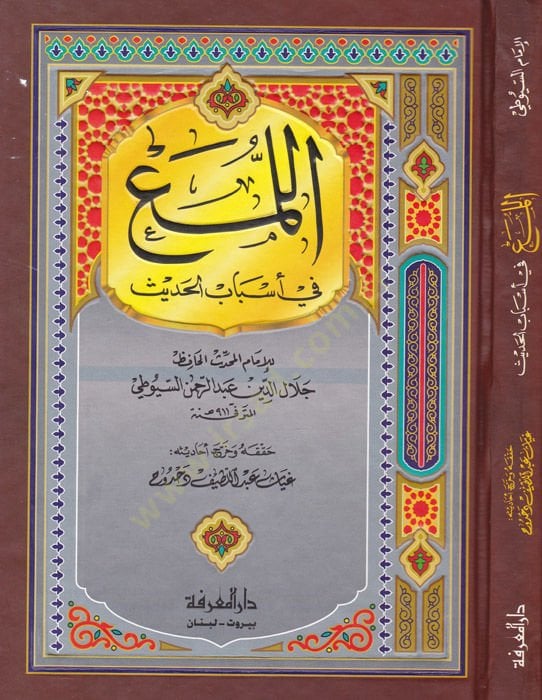 اللُّمَع
في أسباب الحديث
للإمام المحدث الحافظ
جلال الدين عبد الرحمن السيوطي
المتوفى ٩١١ هـ سنة
حققه وخرج أحاديثه:
غياث عبد اللطيف دحدوح
دار المعرفة
بيروت - لبنان
الإمام السيوطي
اللُّمَع
في أسباب الحديث
حققه وخرج أحاديثه:
غياث عبد اللطيف دحدوح
دار المعرفة